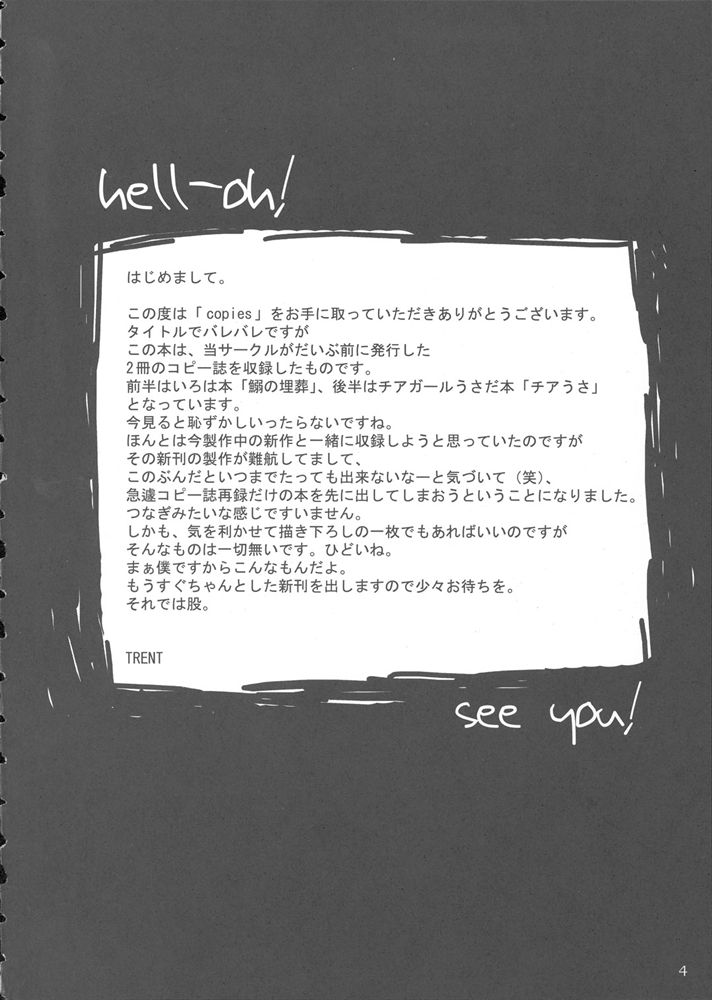 hell-oh!
はじめまして。
この度は「copies」をお手に取っていただきありがとうございます。
タイトルでバレバレですが
この本は、当サークルがだいぶ前に発行した
2冊のコピー誌を収録したものです。
前半はいろは本「鰯の埋葬」、後半はチアガールうさだ本「チアうさ」
となっています。
今見ると恥ずかしいったらないですね。
ほんとは今製作中の新作と一緒に収録しようと思っていたのですが
その新刊の製作が難航してまして、
このぶんだといつまでたっても出来ないなーと気づいて（笑）、
急遽コピー誌再録だけの本を先に出してしまおうということになりました。
つなぎみたいな感じですいません。
しかも、気を利かせて描き下ろしの一枚でもあればいいのですが
そんなものは一切無いです。ひどいね。
まぁ僕ですからこんなもんだよ。
もうすぐちゃんとした新刊を出しますので少々お待ちを。
それでは股。
TRENT
see you!
4